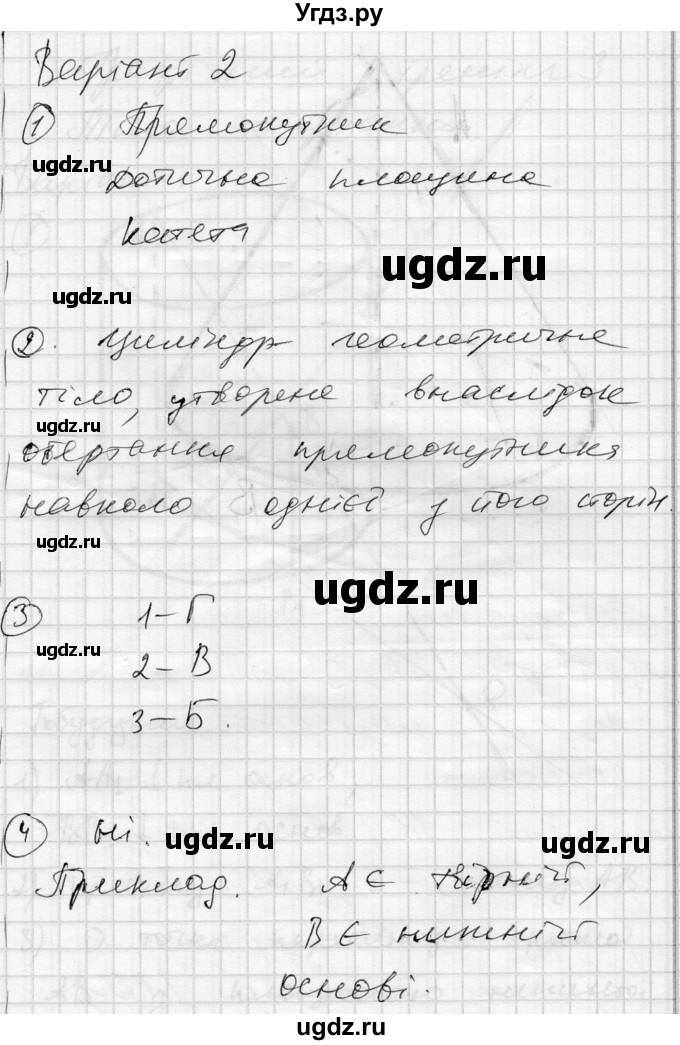 Угдз.ру
Варіант 2
① Прямокутник
ugdz.ru
дотична площина
катета
ugdz.ru
ugdz.ru
②. Циліндр геометричне
тіло, утворене внаслідок
ugdz.ru
обертання прямокутника
навколо однієї з його сторін.
ugdz.ru
ugdz.ru
③ 1 – Г
ugdz.ru
2 – В
3 – Б.
④ Ні.
ugdz.ru
ugdz.ru
Приклад. А Є верхній,
В Є нижній
основі.
ugdz.ru